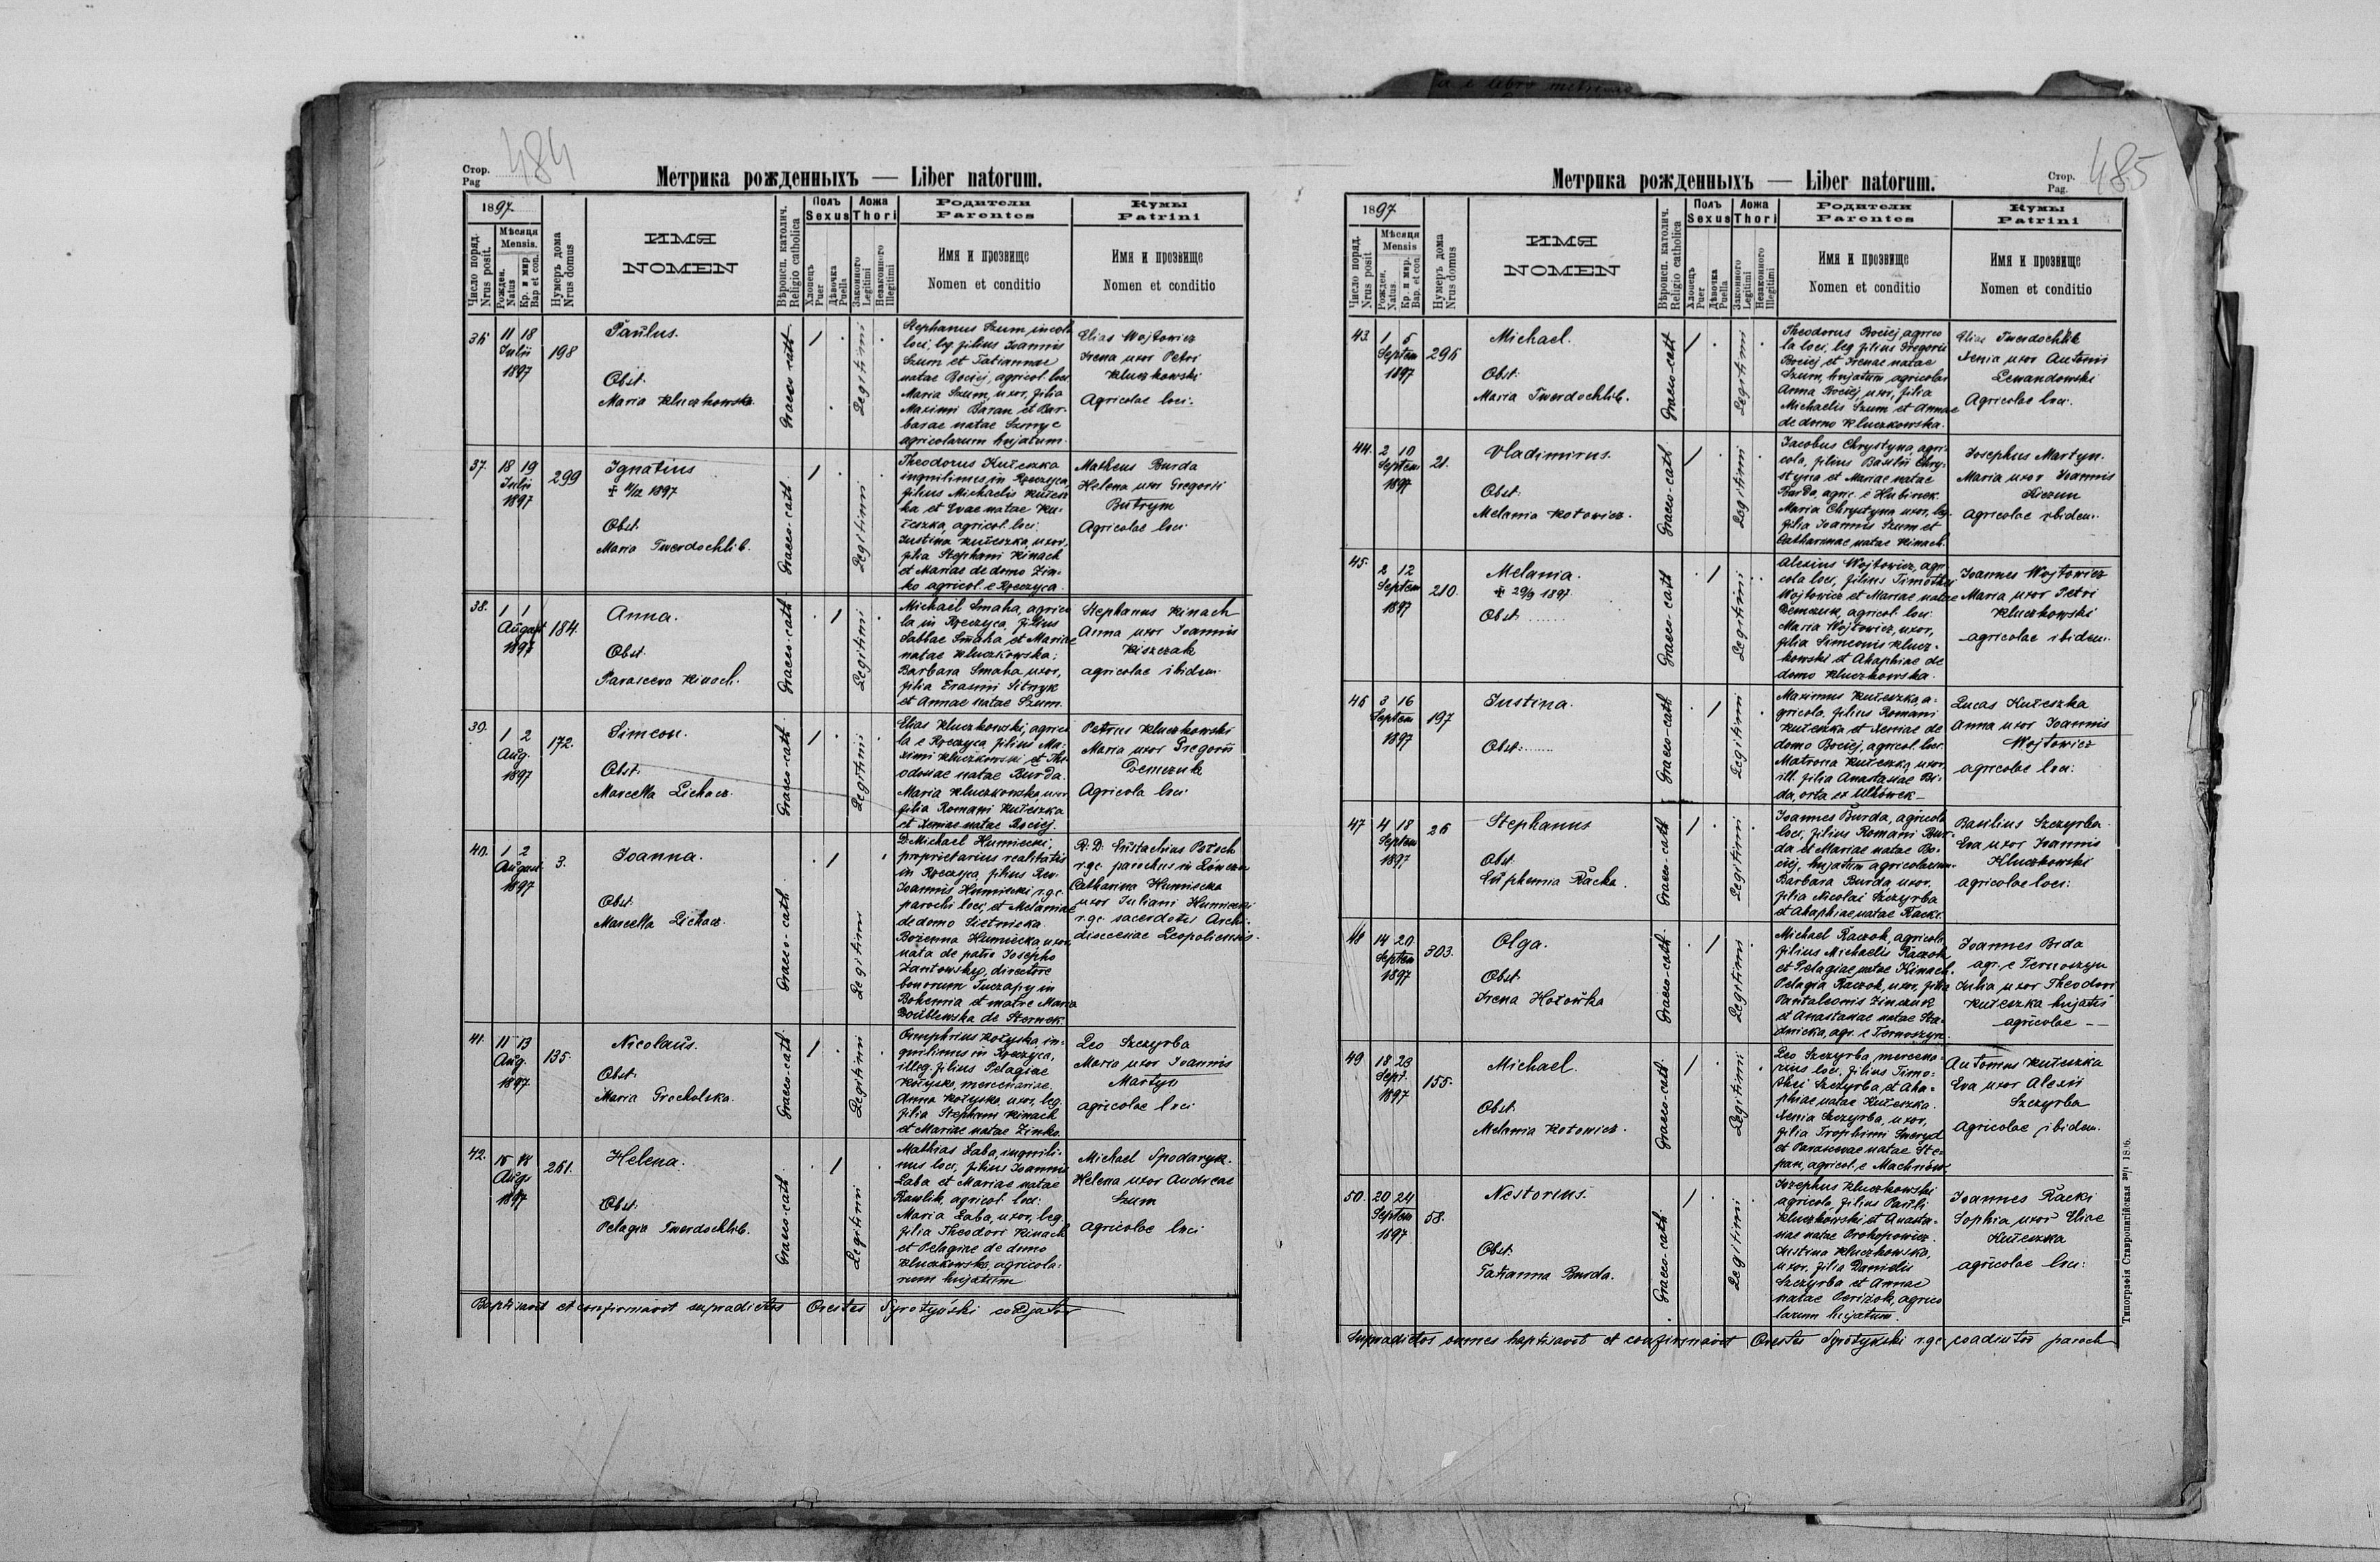 484
Стор.
Pag
Метрика рожденныхъ — Liber natorum.
1897
Число поряд.
Nrus posit.
Мѣсяця
Mensis.
Рожден.
Natus
Кр. и мир
Bap et con.
Нумеръ дома
Nrus domus
ИМЯ
NOMEN
Вѣроисп. католич.
Religio catholica
Полъ
Sexus
Хлопецъ
Puer
Дѣвочка
Puella
Ложа
Thori
Законного
Legitimi
Незаконного
Illegitimi
Родители
Parentes
Имя и прозвище
Nomen et conditio
Кумы
Patrini
Имя и прозвище
Nomen et conditio
36
11 18
Julii
1897
198
Paŭlus.
Obst:
Maria Kluczkowska
Graeco-cath
Legitimi
Stephanus Szum, incola
loci, leg. filius Joannis
Szum et Tatiannae
natae Bociej, agricol. loci
Maria Szum, uxor, filia
Maximi Baran et Bar-
barae natae
agricolarum hujatum.
Elias Wojtowicz
Irena uxor Petri
Kluczkowski
Agricolae loci:
37.
18 19
Julii
1897
299
Ignatius
Obst:
Maria Twerdochlib.
Graeco-cath
Legitimi
Theodorus Kułeszka
inquilinus in Rzeczyca,
filius Michaelis Kułesz
ka et Evae natae Ku-
łeszka, agricol. loci.
Justina Kułeszka, uxor,
filia Stephani Kinach
et Mariae de domo Zin-
ko agricol. e Rzeczyca
Matheus Burda
Helena uxor Gregorii
Butrym
Agricolae loci
38.
1 1
August
1897
184.
Anna.
Obst:
Parasceva Kinach.
Graeco-cath
Legitimi
Michael Smaha, agrico
la in Rzeczyca, filius
Sabbae Smaha et Mariae
natae Kluczkowska;
Barbara Smaha uxor,
filia Erasmi Sitnyk
et Annae natae Szum.
Stephanus Kinach
Anna uxor Joannis
Kiszczak
agricolae ibidem
39.
1 2
Aug.
1897
172.
Simeon.
Obst:
Marcella Lichacz.
Graeco-cath
Legitimi
Elias Kluczkowski, agrico
la e Rzeczyca, filius Ma-
ximi Kluczkowski et The
odosiae natae Burda.
Maria Kluczkowska uxor
filia Romani Kułeszka
et Xeniae natae Bociej.
Petrus Kluczkowski
Maria uxor Gregorii
Demczuk
Agricola loci
40.
1 2
August
1897
3.
Joanna.
Obst:
Marcella Lichacz.
Graeco-cath
Legitimi
D. Michael Humiecki,
proprietarius realitatis
in Rzeczyca, filius Rev.
Joannis Humiecki r.gc.
parochi loci, et Melaniae
de domo Sietnicka
Bożenna Humiecka, uxor,
nata de patre Josepho
Žantowsky, directore
bonorum Tuczapy in
Bohemia et matre Maria
Doublewska de Sternek.
R. D. Eustachius Potsch
r.gc. parochus in
Catharina Humiecka
uxor Juliani Humiecki
r.gc. sacerdotis Archi-
dioecesiae Leopoliensis.
41.
11 13
Aug.
1897
135.
Nicolaŭs.
Obst:
Maria Grocholska.
Graeco-cath
Legitimi
Onuphrius Kożyska, in-
quilinus in Rzeczyca,
illeg. filius Pelagiae
Kożyska, mercenariae.
Anna Kożyska, uxor, leg.
filia Stephani Kinach
et Mariae natae Zinko.
Leo Szczyrba
Maria uxor Joannis
Martyn
agricolae loci
42.
Aug.
1897
261.
Helena.
Obst:
Pelagia Twerdochlib.
Graeco-cath
Legitimi
Mathias Łaba, inquili-
nus loci, filius Joannis
Łaba et Mariae natae
Pawlik, agricol. loci:
Maria Łaba, uxor, leg.
filia Theodori Kinach
et Pelagiae de domo
Kluczkowska, agricola-
rum hujatum
Michael Spodaryk.
Helena uxor Andreae
Szum
agricolae loci
Baptisavit et confirmavit supradictos Orestes coadjutor
485
Стор.
Pag.
Метрика рожденныхъ — Liber natorum.
1897
Число поряд.
Nrus posit
Мѣсяця
Mensis
Рожден.
Natus.
Кр. и мир.
Bap. et con.
Нумеръ дома
Nrus domus
ИМЯ
NOMEN
Вѣроисп. католич.
Religio catholica
Полъ
Sexus
Хлопецъ
Puer
Дѣвочка
Puella
Ложа
Thori
Законного
Legitimi
Незаконного
Illegitimi
Родители
Parentes
Имя и прозвище
Nomen et conditio
Кумы
Patrini
Имя и прозвище
Nomen et conditio
43.
1 5
Septem
1897
296
Michael.
Obst:
Maria Twerdochlib.
Graeco-cath
Legitimi
Theodorus Bociej, agrico
la loci, leg. filius Gregorii
Bociej et Irenae natae
Szum, hujatum agricolar
Anna Bociej, uxor, filia
Michaelis Szum et Annae
de domo Kluczkowska.
Elias Twerdochlib
Xenia uxor Antonii
Lewandowski
Agricolae loci:
44.
2 10
Septem
1897
21.
Vladimirus.
Obst:
Melania Kotowicz.
Graeco-cath
Legitimi
Jacobus Chrystyna, agri-
cola, filius Basilii Chry-
styna et Mariae natae
Burda, agric. e Hubinek.
Maria Chrystyna uxor, leg.
filia Joannis Szum et
Catharinae natae Kinach.
Josephus Martyn.
Maria uxor Joannis
Kiczun
agricolae ibidem.
45.
2 12
Septem
1897
210.
Melania.
+ 29/9 1897
Obst:
Graeco-cath
Legitimi
Alexius Wojtowicz, agri
cola loci, filius Timothei
Wojtowicz et Mariae natae
Demczuk, agricol. loci.
Maria Wojtowicz, uxor,
filia Simeonis Klucz-
kowski et Ahaphiae de
domo Kluczkowska.
Joannes Wojtowicz
Maria uxor Petri
Kluczkowski
agricolae ibidem.
46
3 16
Septem
1897
197
Justina.
Obst:
Graeco-cath
Legitimi
Maximus Kułeszka, a-
gricola, filius Romani
Kułeszka et Xeniae de
domo Bociej, agricol. loci.
Matrona Kułeszka, uxor,
ill. filia Anastasiae Bi-
da, orta ex Ulhówek-
Lucas Kułeszka
Anna uxor Joannis
Wojtowicz
agricolae loci:
47
4 18
Septem
1897
26
Stephanus
Obst.
Euphemia Racka.
Graeco-cath
Legitimi
Joannes Burda, agricola
loci, filius Romani Bur-
da et Mariae natae Bo-
ciej, hujatum agricolarum.
Barbara Burda uxor,
filia Nicolai Szczyrba
et Ahaphiae natae
Basilius Szczyrba
Eva uxor Joannis
Kluczkowski
agricolae loci:
48
14 20
Septem
1897
303.
Olga.
Obst:
Irena
Graeco-cath
Legitimi
Michael Raczok, agricola
filius Michaelis Raczok
et Pelagiae natae Kinach.
Pelagia Raczok, uxor, filia
Pantaleonis Zinczuk
et Anastasiae natae Sta-
dnicka, agr. e Tarnoszyn.
Joannes Bida
agr. e Tarnoszyn
Julia uxor Theodori
Kułeszka hujatis
agricolae - -
49
18 23
Sept.
1897
155.
Michael.
Obst.
Melania Kotowicz.
Graeco-cath
Legitimi
Leo Szczyrba, mercena-
rius loci, filius Timo-
thei Szczyrba, et Aha-
phiae natae Kułeszka.
Xenia Szczyrba, uxor,
filia Trophimi
et Parascevae natae Ste-
pan, agricol. e Machnów.
Antonius Kułeszka
Eva uxor Alexii
Szczyrba
Agricolae ibidem.
50.
20 24
Septem
1897
58.
Nestorius.
Obst:
Tatianna Burda.
Graeco-cath.
Legitimi
Josephus Kluczkowski
agricola, filius Pauli
Kluczkowski et Anasta-
siae natae Prokopowicz.
Justina Kluczkowska,
uxor, filia Danielis
Szczyrba et Annae
natae agrico
larum hujatum.
Joannes Racki
Sophia uxor Eliae
Kułeszka
agricolae loci:
Supradictos omnes baptisavit et confirmavit Orestes r.gc. coadiutor paroch
Типографія Ставропигійская